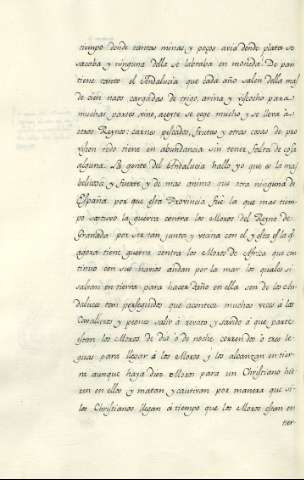 tiempo donde tantas minas, y poços avia dende plata se
sacaba y ninguna della se labraba en moneda. De pan
tiene tanto el Andalucia que cada año salen della mas
de cien naos cargadas de trigo, arina, y viscocho para
muchas partes, vino, aceyte se coge mucho, y se lleva à
otros Reynos: carnes pescados, frutas y otras cosas de pro
visION todo tiene en abundancia sin tener falta de cosa
alguna. La gente del Andalucia hallo yo que es la mas
belicosa, y fuerte, y de mas animo que otra ninguna de
España por que esta Provincia fue la que mas tiem
po sostuvo la guerra contra los Moros del Reyno de
Granada por ser tan junta y vecina con el, y esta es la q̃
agora tiene guerra contra los Moros de Africa que con
tinuo con sus navios andan por la mar los quales si
saltan en tierra para hacer daño en ella son de los An
daluces tan perseguidos que acontece muchas veces à los
Cavalleros y peones salir à revato, y sabido à que parte
estan los Moros de dia ò de noche corren dos ò tres le
guas para llegar à los Moros y los alcanzan en tier
ra aunque haya diez Moros para un Christiano hie
ren en ellos y matan y cautivan por manera que si
los Christianos llegan à tiempo que los Moros estan en
tier-